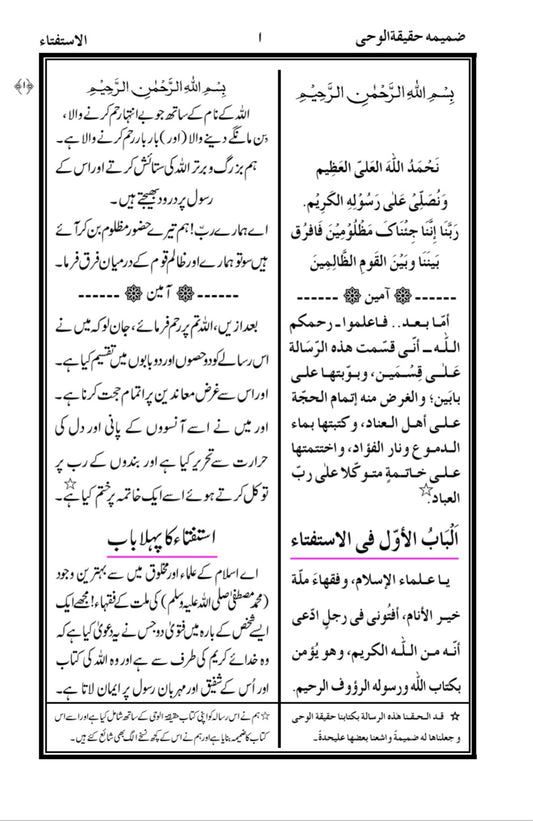 ضمیمہ حقیقۃ الوحی
۱
الاستفتاء
بِسْمِ اللهِ الرَّحْمٰنِ الرَّحِيْمِ
نَحْمَدُ اللّٰهَ العَلىَّ العَظِيم
وَنُصَلِّىْ عَلٰى رَسُوْلِهِ الكَرِيْمِ.
رَبَّنَا إِنَّنَا جِئْنَاكَ مَظْلُوْمِيْنَ فَافرُق
بَيْنَنَا وبَيْنَ القَومِ الظَّالِمِينَ
------ آمین ------
أمّا بعد.. فاعلموا۔ رحمكم
اللّٰه۔ أنّى قسّمت هذه الرّسَالة
عَلٰى قِسْمَين، وبوّبتها على
بابَين؛ والغرض منه إتمام الحجّة
على أهل العناد، وكتبتها بماء
الدموع ونار الفؤاد، واختتمتها
على خاتمةٍ متوكّلا علٰى ربّ
العباد.☆
اَلْبَابُ الأوّل فى الاستفتاء
يا علماء الإسلام، وفقهاءَ ملّة
خير الأنام، أفتُونى فى رجلٍ ادّعى
أنّه من اللّٰه الكريم، وهو يُؤمن
بكتاب الله ورسوله الرؤوف الرحيم.
☆ قد الحقنا هذه الرسالة بكتابنا حقيقة الوحى
و جعلناها له ضميمةً واشعنا بعضها عليحدةً۔
﴿۱﴾
بِسْمِ اللهِ الرَّحْمٰنِ الرَّحِيْمِ
اللہ کے نام کے ساتھ جو بے انتہا رحم کرنے والا،
بن مانگے دینے والا (اور) بار بار رحم کرنے والا ہے۔
ہم بزرگ و برتر اللہ کی ستائش کرتے اور اس کے
رسول پر درود بھیجتے ہیں۔
اے ہمارے ربّ! ہم تیرے حضور مظلوم بن کر آئے
ہیں سو تو ہمارے اور ظالم قوم کے درمیان فرق فرما۔
------ آمین ------
بعد ازیں، اللہ تم پر رحم فرمائے، جان لو کہ میں نے
اس رسالے کو دو حصوں اور دو بابوں میں تقسیم کیا ہے۔
اور اس سے غرض معاندین پر اتمام حجت کرنا ہے۔
اور میں نے اسے آنسوؤں کے پانی اور دل کی
حرارت سے تحریر کیا ہے اور بندوں کے رب پر
توکل کرتے ہوئے اسے ایک خاتمہ پر ختم کیا ہے۔☆
استفتاء کا پہلا باب
اے اسلام کے علماء اور مخلوق میں سے بہترین وجود
(محمد مصطفیٰ صلی اللہ علیہ وسلم) کی ملت کے فقہاء! مجھے ایک
ایسے شخص کے بارہ میں فتویٰ دو جس نے یہ دعویٰ کیا ہے کہ
وہ خدائے کریم کی طرف سے ہے اور وہ اللہ کی کتاب
اور اُس کے شفیق اور مہربان رسول پر ایمان لاتا ہے۔
☆ ہم نے اس رسالہ کو اپنی کتاب حقیقۃ الوحی کے ساتھ شامل کیا ہے اور اسے اس
کتاب کا ضمیمہ بنایا ہے اور ہم نے اس کے کچھ نسخے الگ بھی شائع کئے ہیں۔